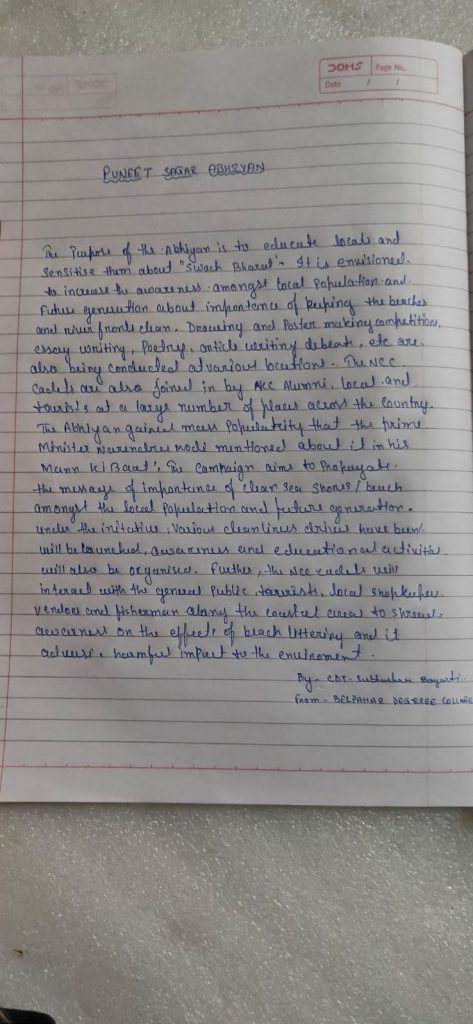 DOMS
Page No.
Date / /
PUNEET SAGAR ABHIYAN
The Purpose of the Abhiyan is to educate locals and
Sensitise them about "Swach Bharat". It is envisioned.
to increase the awareness amongst local Population and.
Future generation about importance of keeping the beaches
and river fronts clean. Drawing and Poster making competitions,
essay writing, Poetry, article writing debeats, etc are.
also being conducted at various locations. The NCC
Cadets are also joined in by NCC Alumni, local and
tourists at a large number of places across the Country.
The Abhiyan gained mass Populatity that the prime
Minister Narendra Modi mentioned about it in his
Mann Ki Baat', The Campaign aims to Propagate.
the message of importance of clean sea shores / beach
amongst the local Population and future generation.
under the initative, Various cleanlines drives have been/
will be launched, awareness and educational activities.
will also be organised. Further, the NCC cadets will
interact with the general Public, tourist, local shopkeeper.
Vendors and fisherman along the coastal areas to
awarness on the effects of beach littering and it
harmful impact to the enviroment.
By - CDT.
From - BELPAHAR DEGREEE COLLAGE